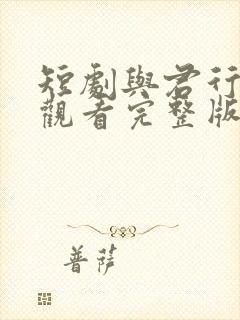 短劇與君行
觀看完整版
菩薩